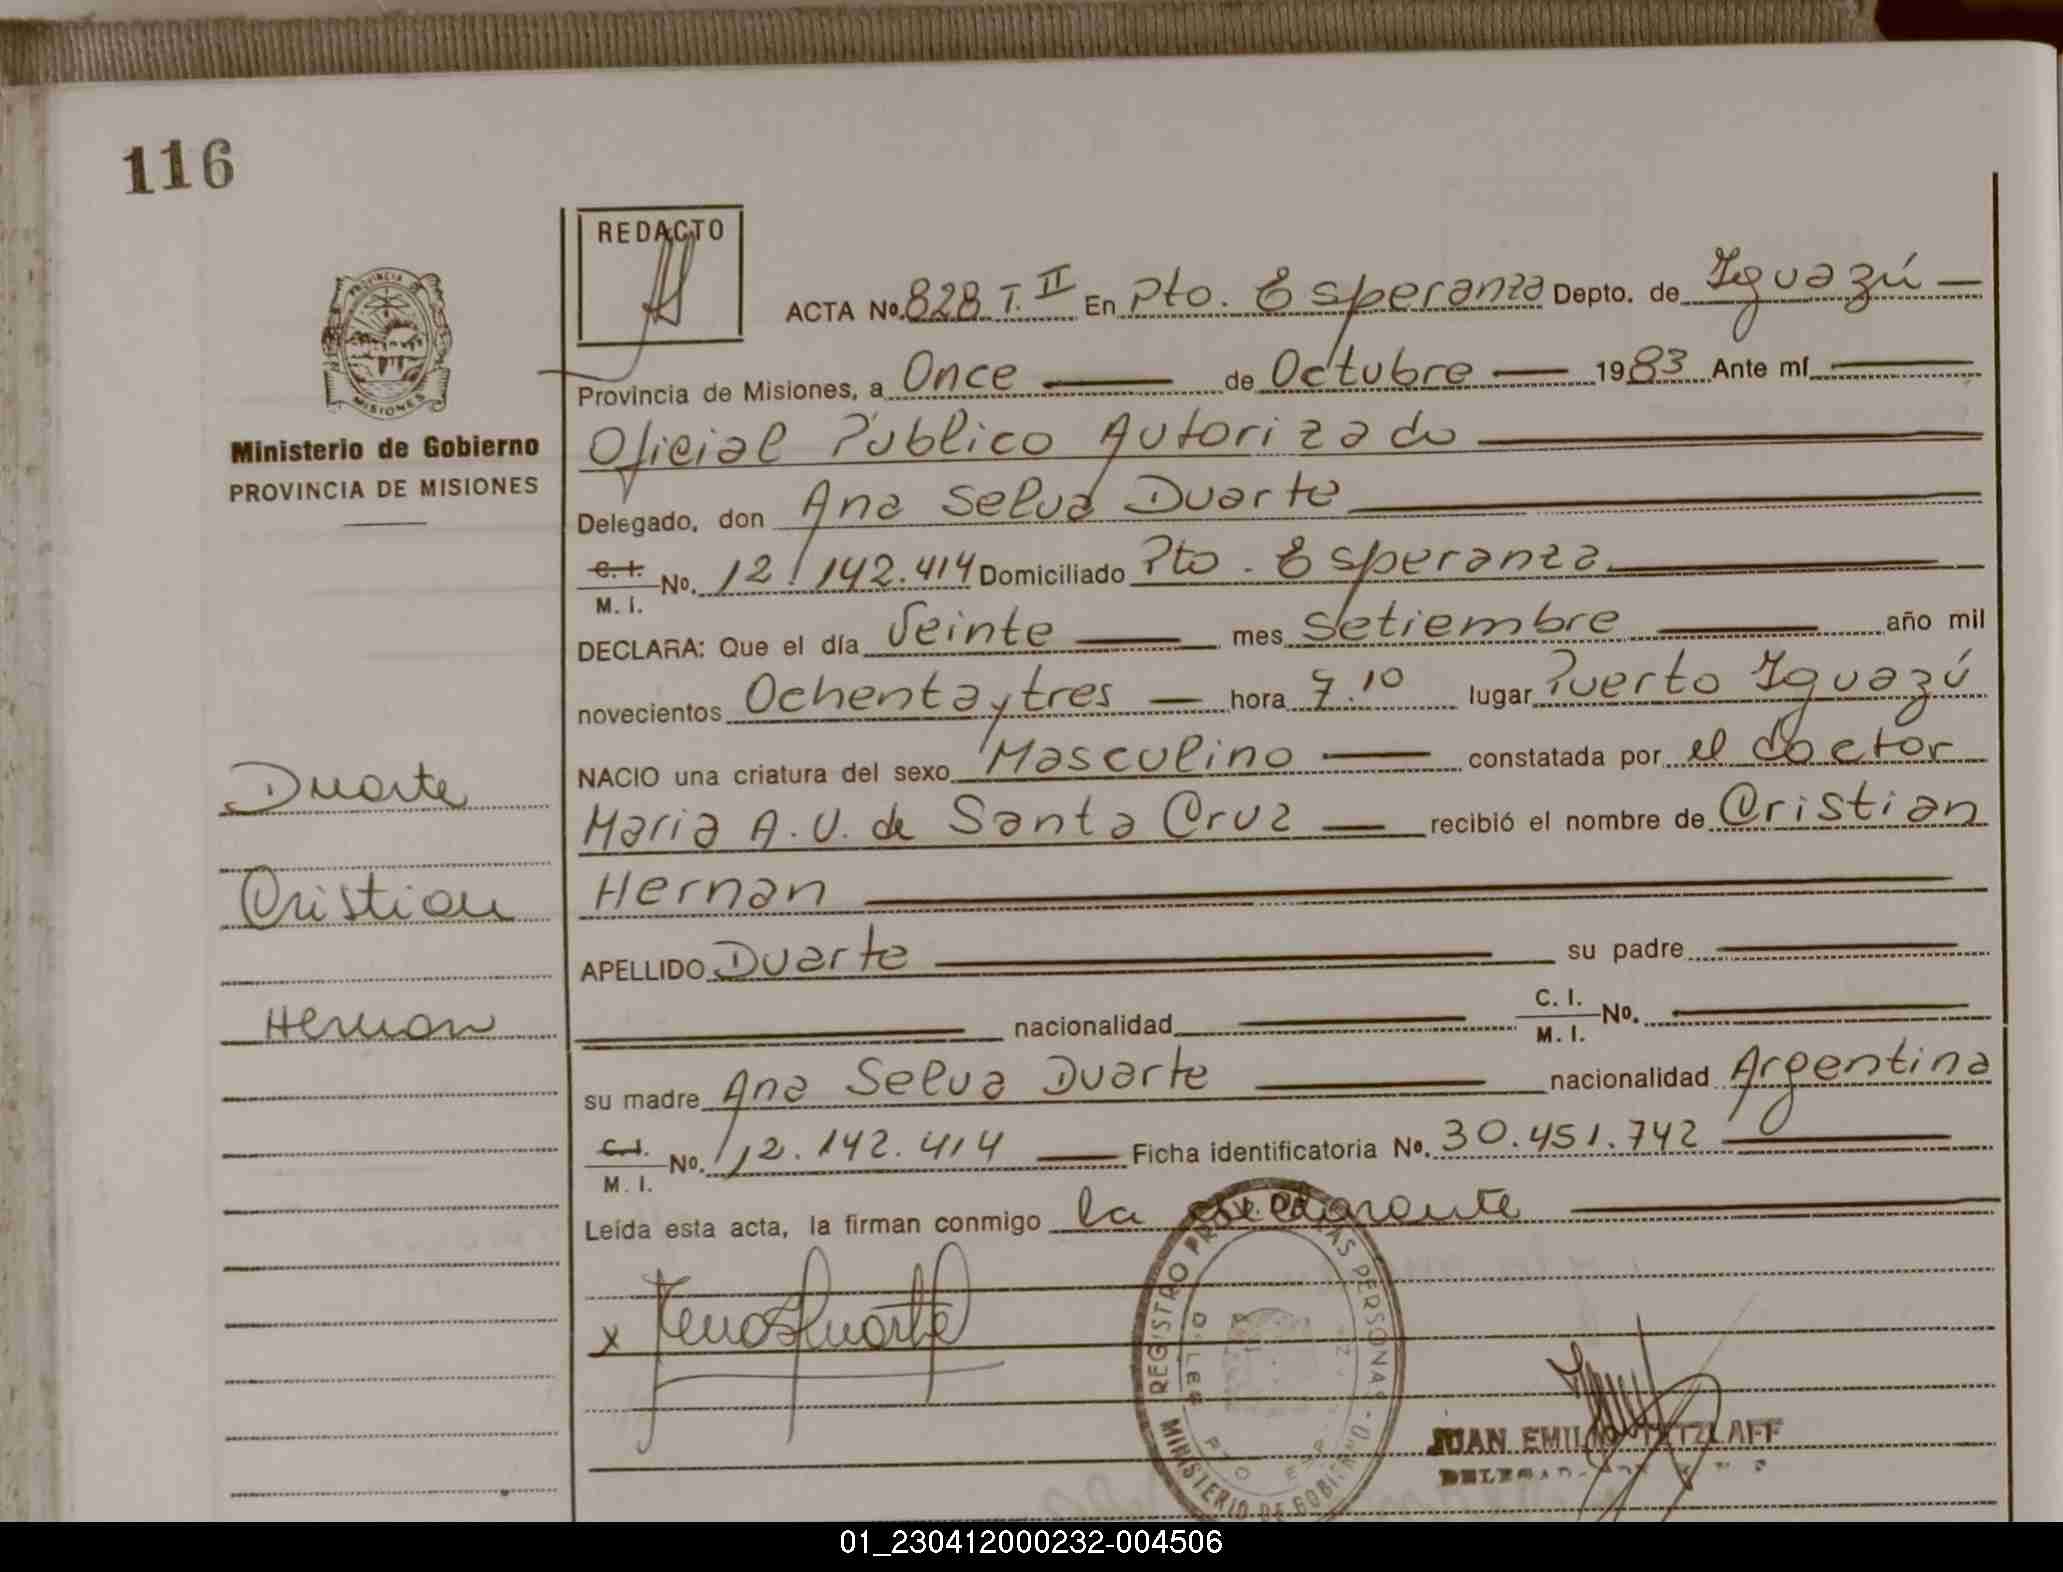 116
REDACTO
ACTA No. 828 T. II En Pto. Esperanza Depto. de Iguazú
Provincia de Misiones, a Once de Octubre 1983 Ante mí
Ministerio de Gobierno
PROVINCIA DE MISIONES
Oficial Público Autorizado
Delegado, don Ana Selva Duarte
C. I.
M. I. No. 12.142.414 Domiciliado Pto. Esperanza
DECLARA: Que el día Veinte mes Setiembre año mil
novecientos Ochenta y tres hora 7.10 lugar Puerto Iguazú
NACIO una criatura del sexo Masculino constatada por el doctor
Maria A. V. de Santa Cruz recibió el nombre de Cristian
Hernan
APELLIDO Duarte su padre
nacionalidad C. I.
M. I. No.
su madre Ana Selva Duarte nacionalidad Argentina
C. I.
M. I. No. 12.142.414 Ficha identificatoria No. 30.451.742
Leída esta acta, la firman conmigo la declarante
Duarte
Cristian
Hernan
PROVINCIA DE
MISIONES
x
REGISTRO PROV. DE LAS PERSONAS
MINISTERIO DE GOBIERNO
JUAN EMILIO
01_230412000232-004506